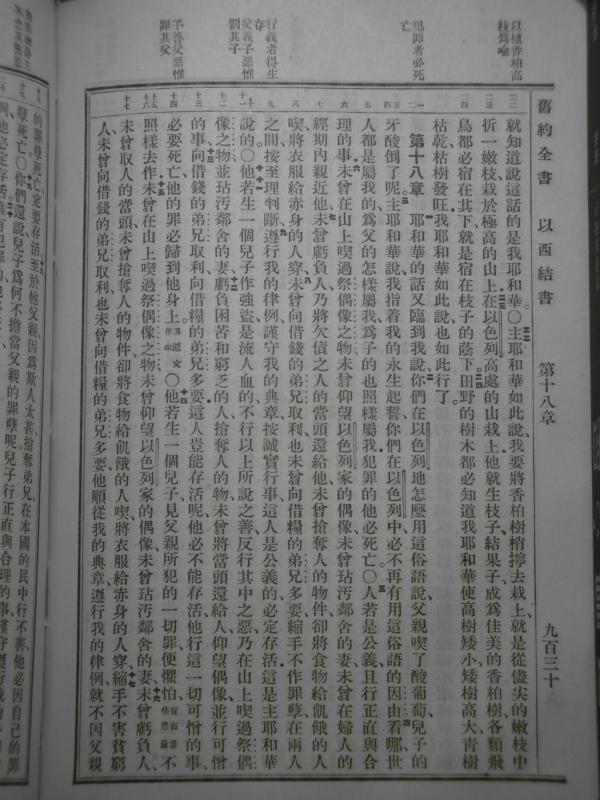 舊約全書 以西結書 第十八章 九百三十
以栬香柏高
枝為喻
犯罪者必死
亡
行義者得生
存
父義子惡惟
罰其子
子善父惡惟
罪其父
就知道說這話的是我耶和華○主耶和華如此說我要將香柏樹梢擰去栽上就是從儘尖的嫩枝中
折一嫩枝栽於極高的山上在以色列高處的山栽上他就生枝子結果子成為佳美的香柏樹各類飛
鳥都必宿在其下就是宿在枝子的蔭下田野的樹木都必知道我耶和華使高樹矮小矮樹高大青樹
枯乾枯樹發旺我耶和華如此說也如此行了
第十八章 耶和華的話又臨到我說你們在以色列地怎麼用這俗語說父親喫了酸葡萄兒子的
牙酸倒了呢主耶和華說我指着我的永生起誓你們在以色列中必不再有用這俗語的因由看哪世
人都是屬我的為父的怎樣屬我為子的也照樣屬我犯罪的他必死亡○人若是公義且行正直與合
理的事未曾在山上喫過祭偶像之物未曾仰望以色列家的偶像未曾玷汚鄰舍的妻未曾在婦人的
經期內親近他未曾虧負人乃將欠債之人的當頭還給他未曾搶奪人的物件卻將食物給飢餓的人
喫將衣服給赤身的人穿未曾向借錢的弟兄取利也未曾向借糧的弟兄多要縮手不作罪孽在兩人
之間按至理判斷遵行我的律例謹守我的典章按誠實行事這人是公義的必定存活這是主耶和華
說的○他若生一個兒子作強盜是流人血的不行以上所說之善反行其中之惡乃在山上喫過祭偶
像之物並玷汚鄰舍的妻虧負困苦和窮乏的人搶奪人的物未曾將當頭還給人仰望偶像並行可憎
的事向借錢的弟兄取利向借糧的弟兄多要這人豈能存活呢他必不能存活他行這一切可憎的事
必要死亡他的罪必歸到他身上○他若生一個兒子見父親所犯的一切罪便懼怕有古卷作思量不
照樣去作未曾在山上喫過祭偶像之物未曾仰望以色列家的偶像未曾玷汚鄰舍的妻未曾虧負人
未曾取人的當頭未曾搶奪人的物件卻將食物給飢餓的人喫將衣服給赤身的人穿縮手不害貧窮
人未曾向借錢的弟兄取利也未曾向借糧的弟兄多要他順從我的典章遵行我的律例就不因父親
的罪孽死亡定要存活至於他父親因為欺人太甚搶奪弟兄在本國的民中行不善他必因自己的罪
孽死亡○你們還說兒子為何不擔當父親的罪孽呢兒子行正直與合理的事謹守遵行我的